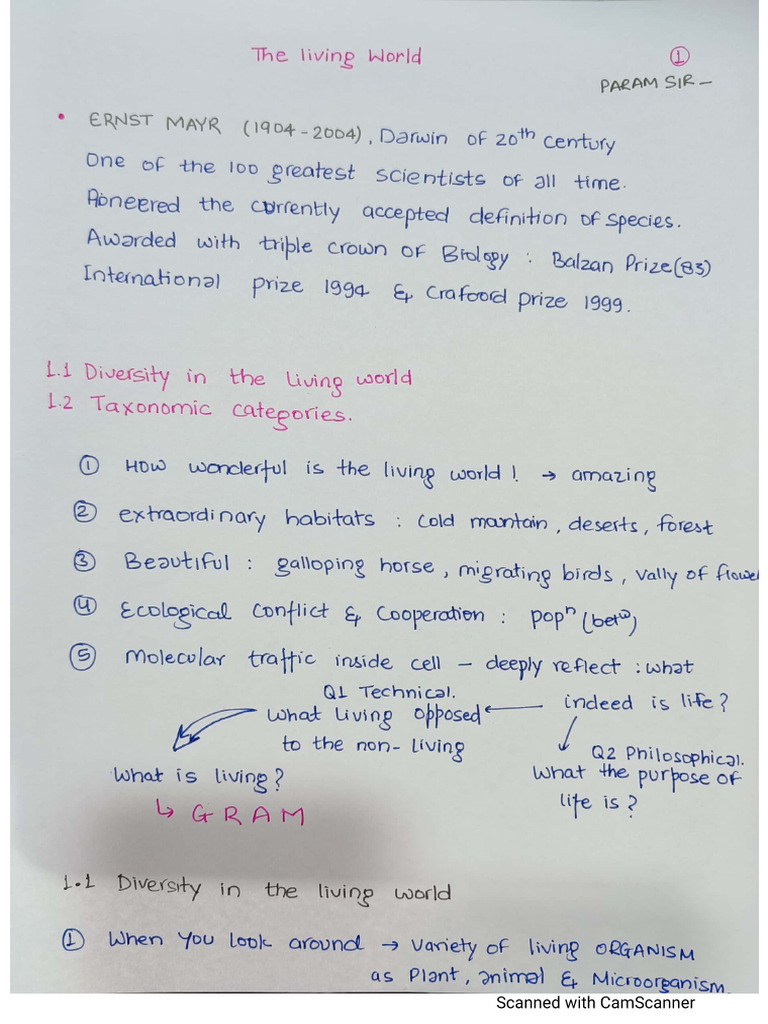 The living World
①
PARAM SIR –
• ERNST MAYR (1904 - 2004), Darwin of 20th century
One of the 100 greatest scientists of all time.
Pioneered the currently accepted definition of species.
Awarded with triple crown of Biology : Balzan Prize (83)
International prize 1994 & Crafoord prize 1999.
1.1 Diversity in the Living world
1.2 Taxonomic categories.
① How wonderful is the living world! → amazing
② extraordinary habitats : cold mantain, deserts, forest
③ Beautiful : galloping horse, migrating birds, vally of flower
④ Ecological conflict & Cooperation : popn (betw)
⑤ molecular traffic inside cell – deeply reflect : what
indeed is life?
Q1 Technical.
What Living opposed
to the non-living
What is living?
↳ GRAM
Q2 Philosophical.
What the purpose of
life is?
1.1 Diversity in the living world
① When You Look around → variety of living ORGANISM
as Plant, animal & Microorganism.
Scanned with CamScanner